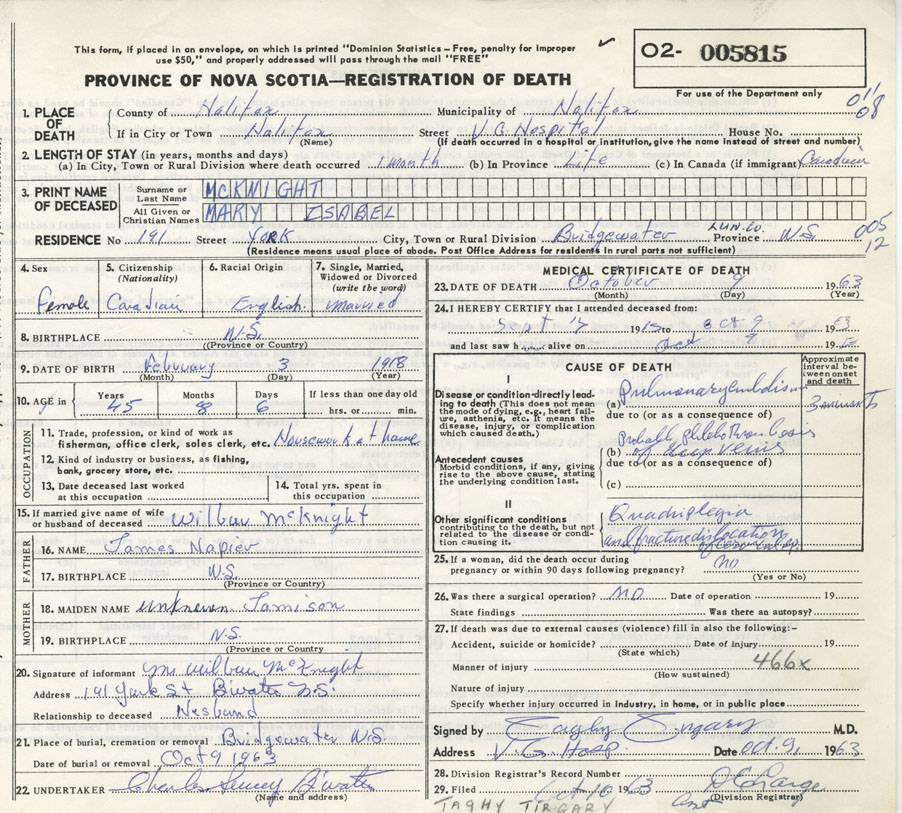 This form, if placed in an envelope, on which is printed "Dominion Statistics – Free, penalty for improper
use $50," and properly addressed will pass through the mail "FREE"
O2- 005815
PROVINCE OF NOVA SCOTIA—REGISTRATION OF DEATH
For use of the Department only
011
08
1. PLACE OF DEATH
County of Halifax Municipality of Halifax
If in City or Town Halifax Street V.G. Hospital House No.
(Name) (If death occurred in a hospital or institution, give the name instead of street and number)
2. LENGTH OF STAY (in years, months and days)
(a) In City, Town or Rural Division where death occurred 1 month (b) In Province Life (c) In Canada (if immigrant) Canadian
3. PRINT NAME OF DECEASED
Surname or Last Name MCKNIGHT
All Given or Christian Names MARY ISABEL
RESIDENCE No 191 Street YORK City, Town or Rural Division Bridgewater LUN. CO. Province N.S.
005
12
(Residence means usual place of abode. Post Office Address for residents in rural parts not sufficient)
4. Sex
Female
5. Citizenship (Nationality)
Canadian
6. Racial Origin
English
7. Single, Married, Widowed or Divorced (write the word)
married
8. BIRTHPLACE N.S.
(Province or Country)
9. DATE OF BIRTH February 3 1918
(Month) (Day) (Year)
10. AGE in
Years Months Days If less than one day old
45 8 6 hrs. or min.
OCCUPATION
11. Trade, profession, or kind of work as
fisherman, office clerk, sales clerk, etc. Housework at home
12. Kind of industry or business, as fishing,
bank, grocery store, etc.
13. Date deceased last worked
at this occupation
14. Total yrs. spent in
this occupation
15. If married give name of wife
or husband of deceased Wilbur McKnight
FATHER
16. NAME James Napier
17. BIRTHPLACE N.S.
(Province or Country)
MOTHER
18. MAIDEN NAME unknown Jamison
19. BIRTHPLACE N.S.
(Province or Country)
20. Signature of informant Mr Wilbur McKnight
Address 191 York St B'water N.S.
Relationship to deceased Husband
21. Place of burial, cremation or removal Bridgewater N.S.
Date of burial or removal Oct 9 1963
22. UNDERTAKER Charles B'water
(Name and address)
MEDICAL CERTIFICATE OF DEATH
23. DATE OF DEATH October 9 1963
(Month) (Day) (Year)
24. I HEREBY CERTIFY that I attended deceased from:
Sept 19 to Oct 9 19
and last saw h alive on Oct 9 19
CAUSE OF DEATH
Approximate interval between onset and death
I
Disease or condition directly leading to death (This does not mean
the mode of dying, e.g., heart failure, asthenia, etc. It means the
disease, injury, or complication
which caused death.)
(a) Pulmonary embolism
due to (or as a consequence of)
Antecedent causes
Morbid conditions, if any, giving
rise to the above cause, stating
the underlying condition last.
Probably phlebothrombosis
(b) of deep veins
due to (or as a consequence of)
(c)
II
Other significant conditions
contributing to the death, but not
related to the disease or condition causing it.
Quadriplegia
and fracture dislocation
of cervical sp.
25. If a woman, did the death occur during
pregnancy or within 90 days following pregnancy? no
(Yes or No)
26. Was there a surgical operation? no Date of operation 19
State findings Was there an autopsy?
27. If death was due to external causes (violence) fill in also the following:–
Accident, suicide or homicide? Date of injury 19
(State which)
Manner of injury 466x
(How sustained)
Nature of injury
Specify whether injury occurred in industry, in home, or in public place
Signed by Taghy Tirgary M.D.
Address V.G. Hosp. Date Oct. 9, 1963
28. Division Registrar's Record Number
29. Filed Oct 10 1963
(Division Registrar)
TAGHY TIRGARY